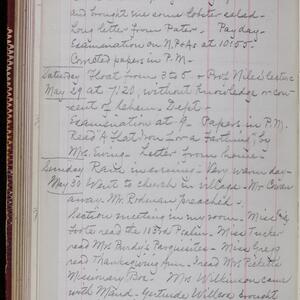 and brought me some lobster salad-
Long letter from Pater. Pay day-
Examination on N.P.+As at 10:55-
Corrected papers in P.M.
Saturday Float from 3 to 5 + Prof. Niles' lecture
May 29 at 7:20, without knowledge or con-
sent of Chem. Dept-
Examination at 9- Papers in P.M.
Read "A Flat Iron for a Farthing", by
Mrs. Ewing. Letter from home-
Sunday Rain in evening- Very warm day-
May 30 Went to church in village- Mr
away- Mr. Rodman preached-
Section meeting in my room- Miss
read the 103rd Psalm- Miss Tucker
read Mrs. Purdy's Parquisites- Miss Gregg
read Thanksgiving Ann- I read Mrs Picket's
Missionary Box- Mrs Wilkinson came
with Maud- Gertrude Willcox brought